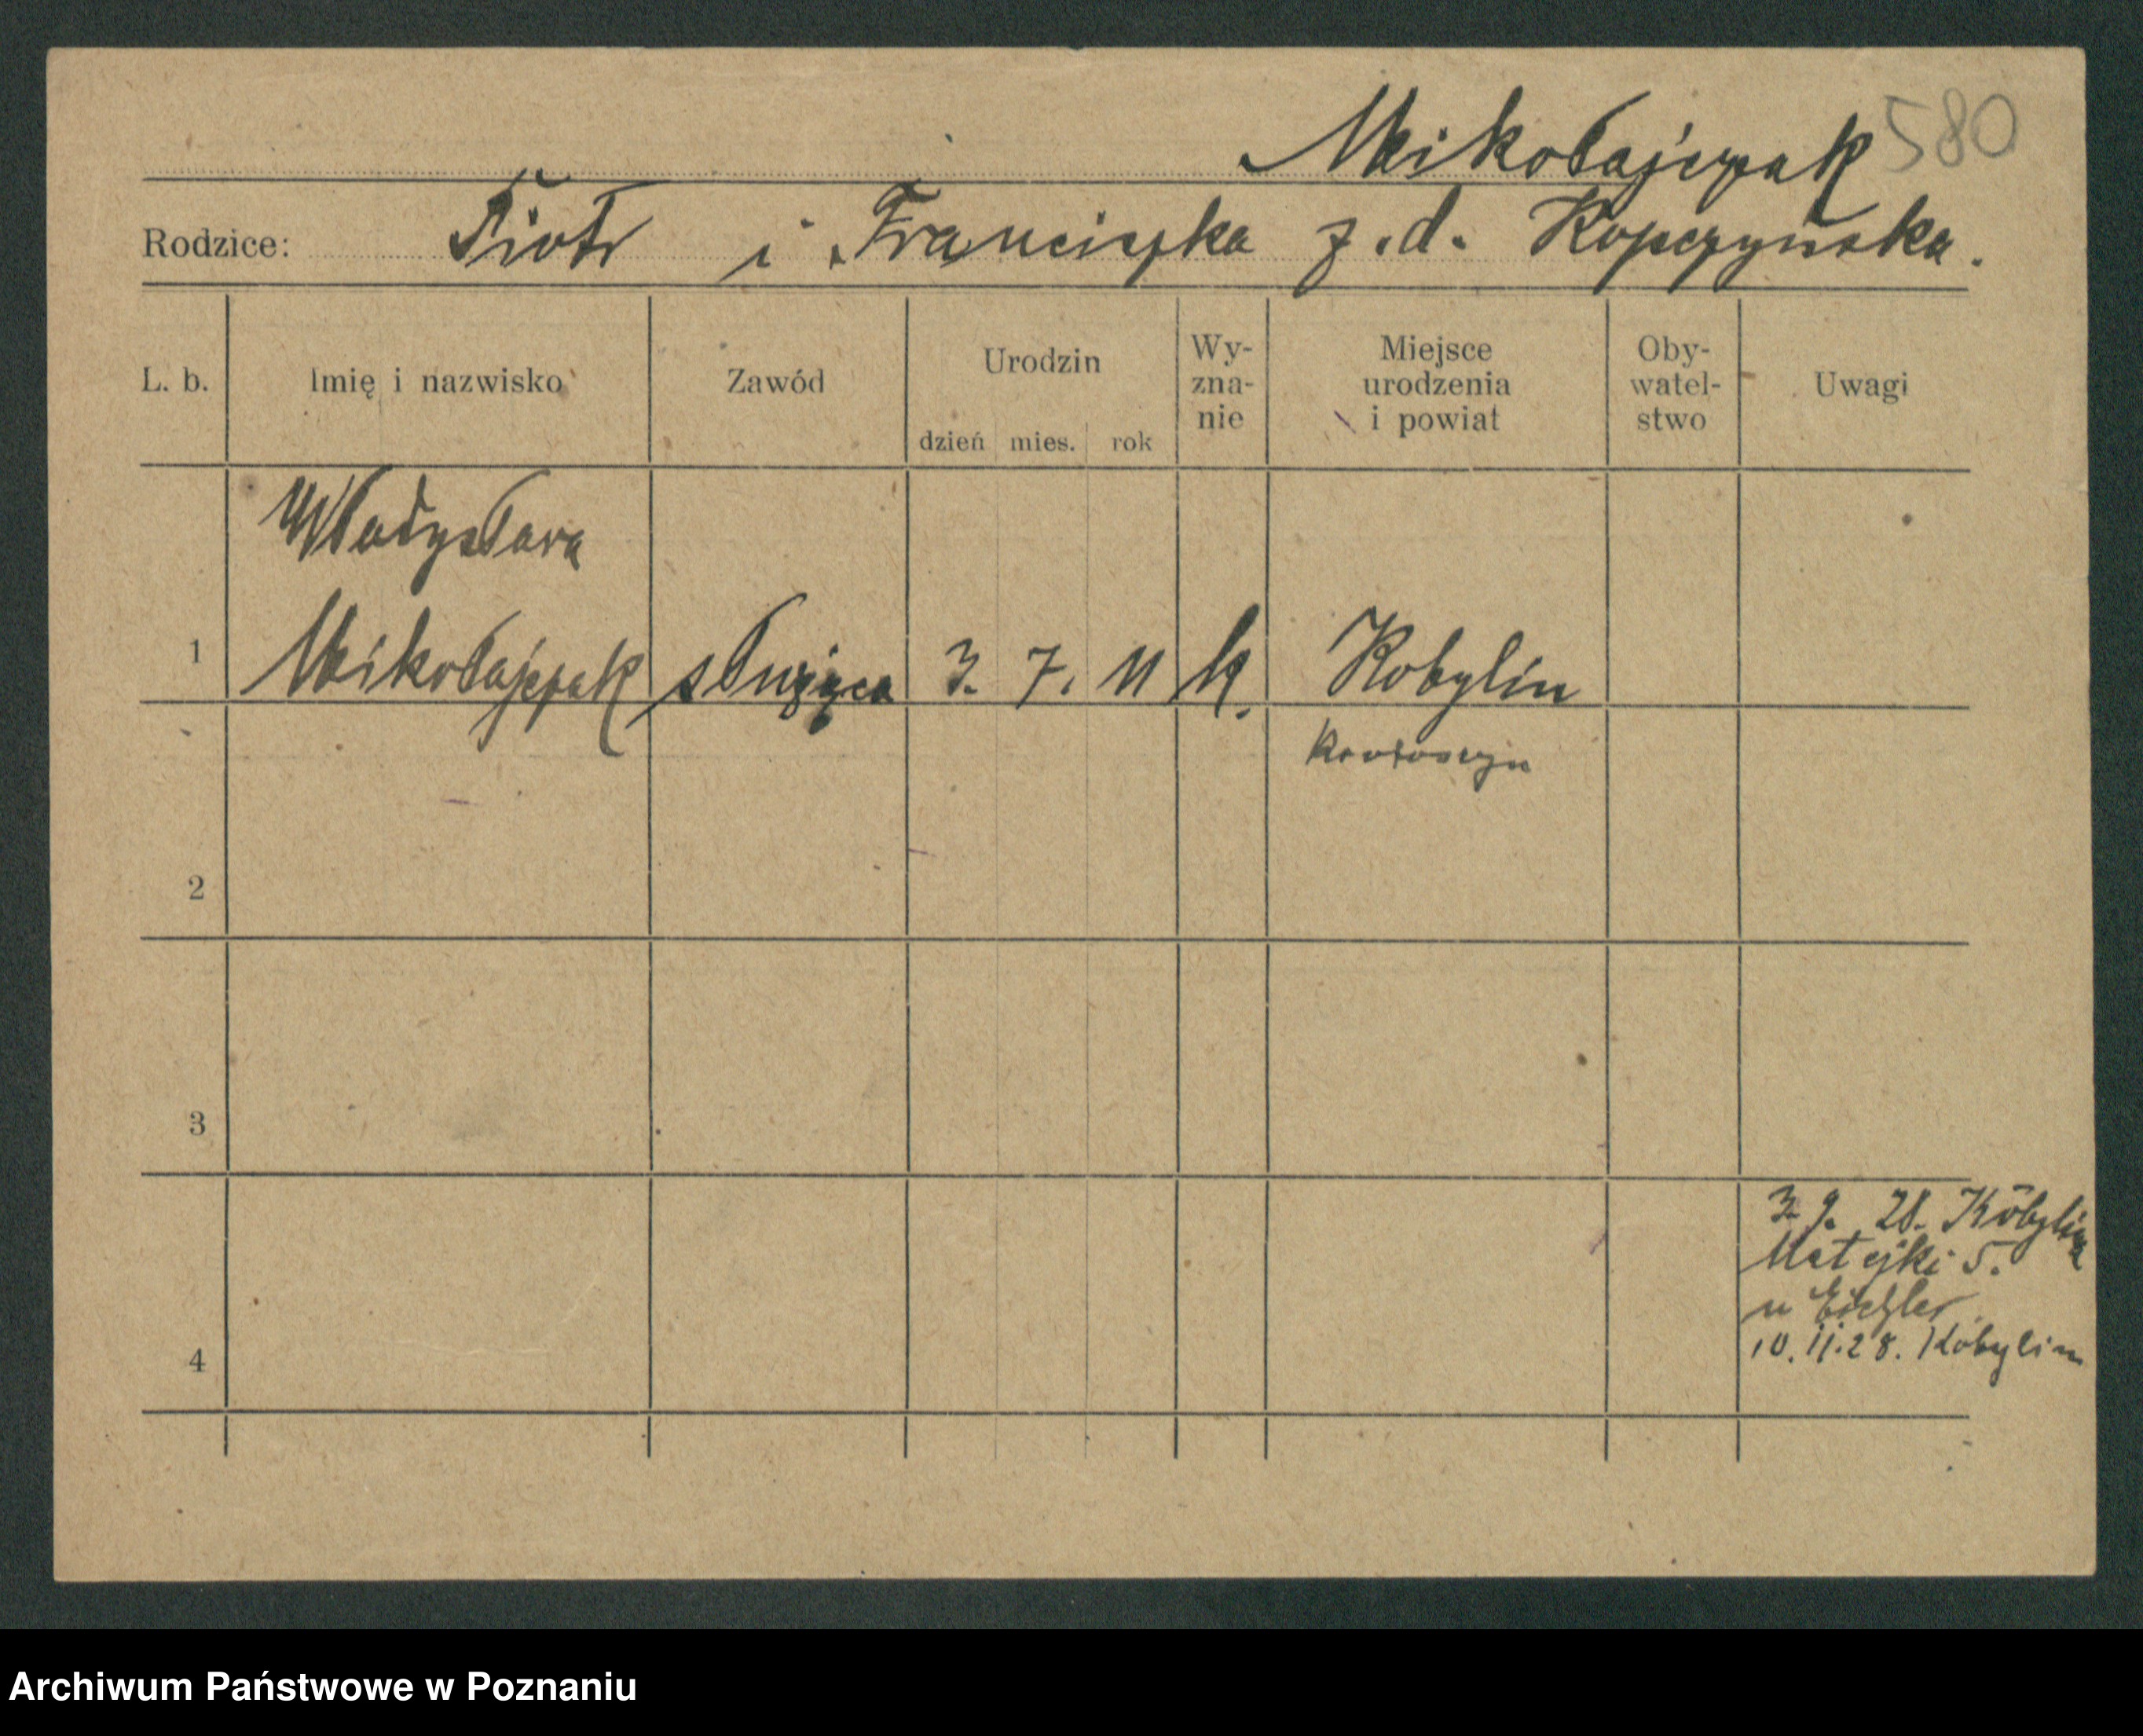 Mikołajczak 580
Rodzice: Piotr i Franciszka z.d. Kopczyńska.
L. b. Imię i nazwisko Zawód Urodzin dzień mies. rok Wy-zna-nie Miejsce urodzenia i powiat Oby-watel-stwo Uwagi
Władysława
1 Mikołajczak służąca 3. 7. 11 k. Kobylin
Krotoszyn
2
3
3. 9. 28. Kobylin
Matejki 5.
u Eichler
4 10. 11. 28. Kobylin
Archiwum Państwowe w Poznaniu